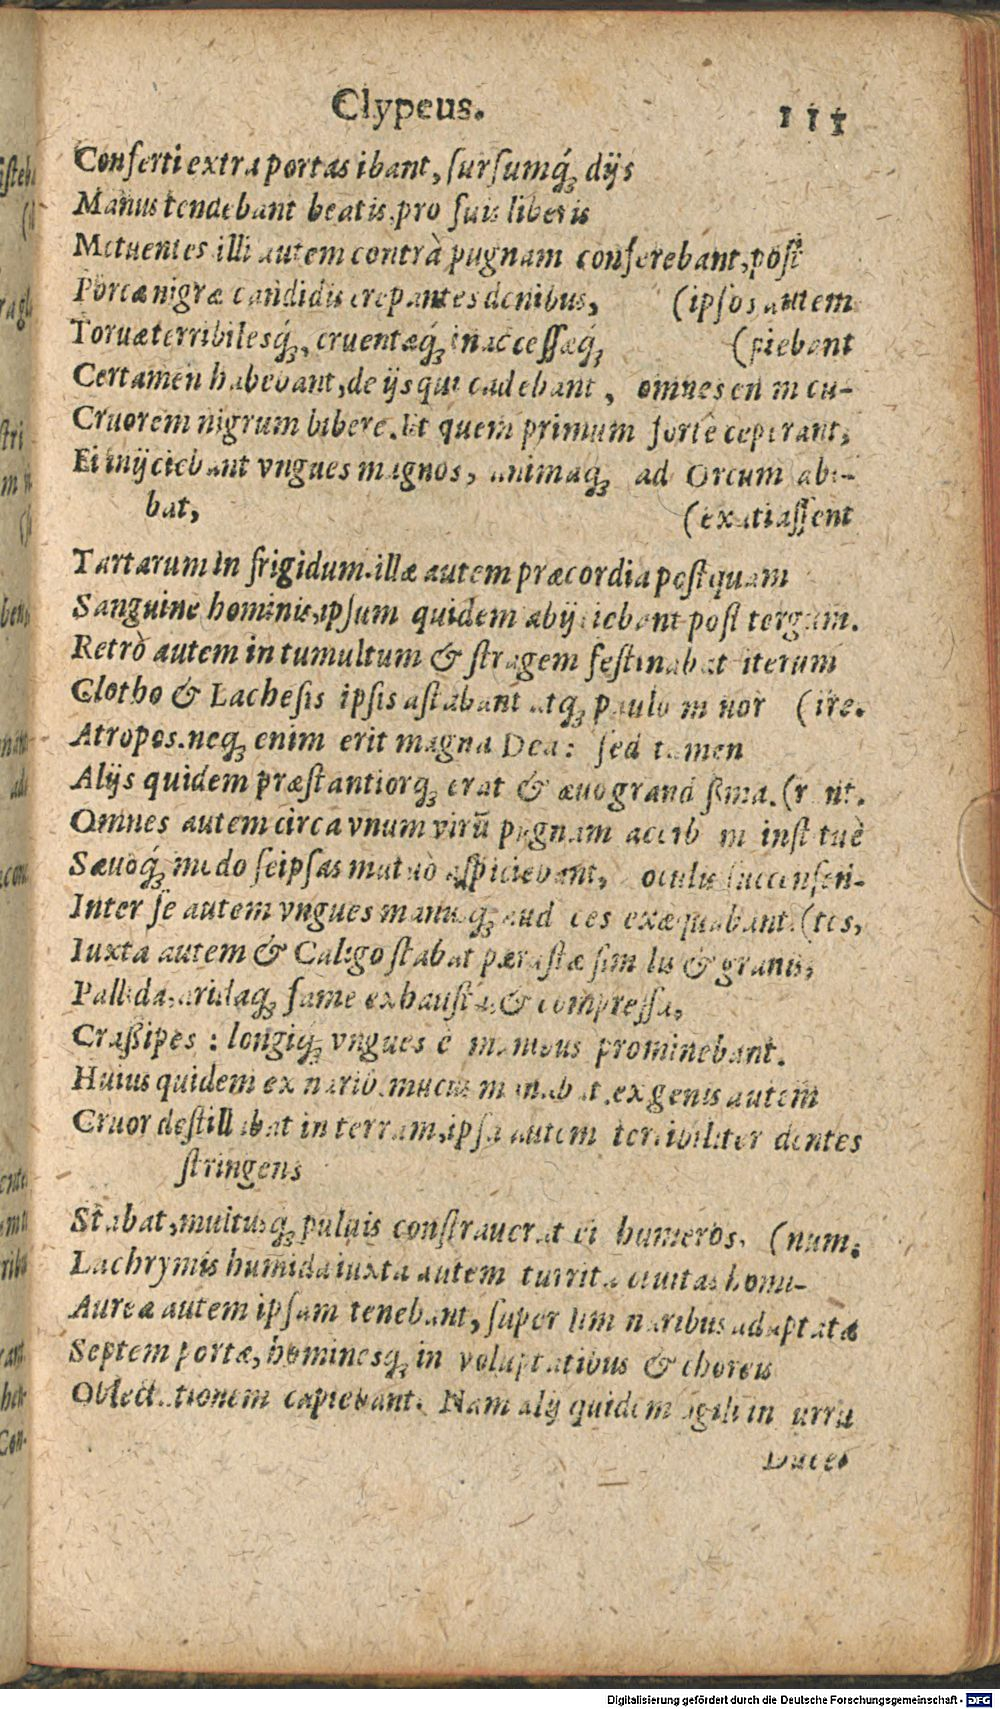 Clypeus. 111
Conserti extra portas ibant, sursumq́; dijs
Manus tendebant beatis, pro suis liberis
Metuentes illi autem contrà pugnam conserebant, post
Parcæ nigræ candidis crepantes dentibus, (ipsos autem
Toruæ terribilesq́;, cruentæq́; inaccessæq́; (piebant
Certamen habebant, de ijs qui cadebant, omnes enim cu-
Cruorem nigrum bibere. Et quem primum forte ceperant,
Ei inijciebant vngues magnos, animaq; ad Orcum abi-
bat, (exatiassent
Tartarum in frigidum. illæ autem præcordia postquam
Sanguine hominis, ipsum quidem abijciebant post tergum.
Retrò autem in tumultum & stragem festinabat iterum
Clotho & Lachesis ipsis astabant atq; paulo minor (ire.
Atropos. neq; enim erat magna Dea: sed tamen
Alijs quidem præstantiorq; erat & æuo grandissima. (runt.
Omnes autem circa vnum virũ pugnam acerbam instituè
Sæuoq́; modo seipsas mutuò aspiciebant, oculis succensen-
Inter se autem vngues manusq; audaces exæquabant. (tes,
Iuxta autem & Caligo stabat stabat similis & grauis,
Pallida, aridaq; fame exhausta, & compressa,
Craßipes: longiq́; vngues è manibus prominebant.
Huius quidem ex narib. mucus manabat. ex genis autem
Cruor destillabat in terram, ipsa autem terribiliter dentes
stringens
Stabat, multusq; puluis constrauerat ei humeros, (num.
Lachrymis humida iuxta autem turrita ciuitas homi-
Aureæ autem ipsam tenebant, super naribus adaptatæ
Septem portæ, hominesq; in voluptatibus & choreis
Oblectationem capiebant. Nam alij quidem agili in curru
Duce
Digitalisierung gefördert durch die Deutsche Forschungsgemeinschaft - DFG